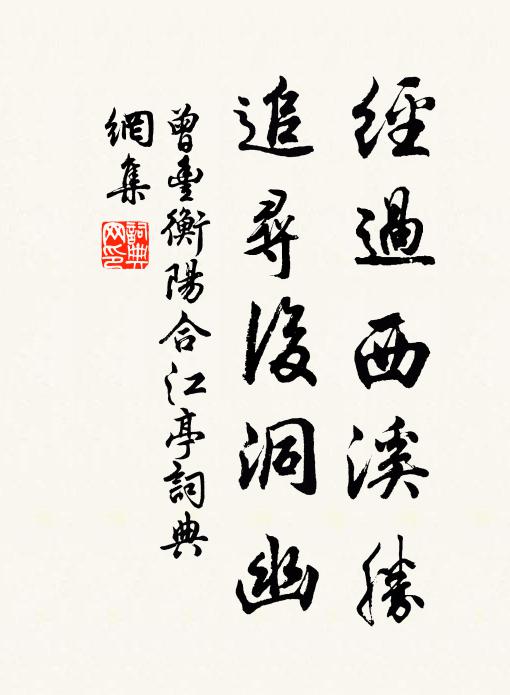 經過西溪勝
追尋後洞幽
曾豐衡陽合江亭詞典
網集
詞典
网印